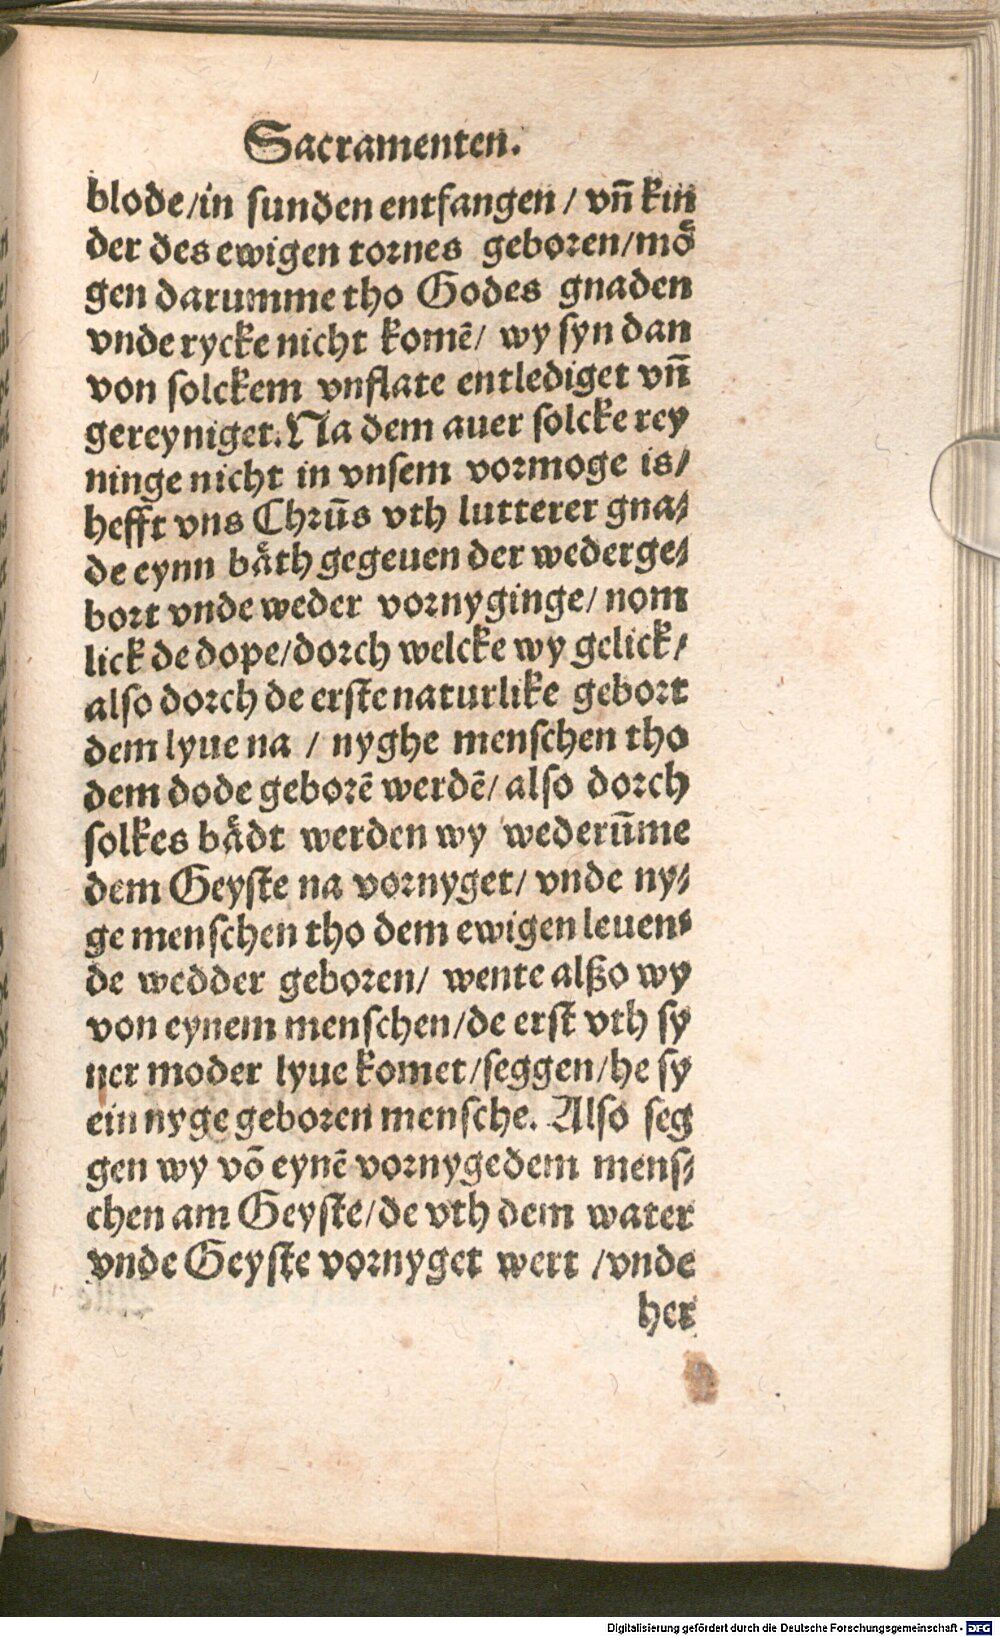 Sacramenten.
blode/in sunden entfangen / vñ kin
der des ewigen tornes geboren/moͤ
gen darumme tho Godes gnaden
vnde rycke nicht komē/ wy syn dan
von solckem vnflate entlediget vñ
gereyniget. Na dem auer solcke rey
ninge nicht in vnsem vormoge is/
hefft vns Chrūs vth lutterer gna⸗
de eynn baͤth gegeuen der wederge⸗
bort vnde weder vornyginge/ nom
lick de dope/dorch welcke wy gelick/
also dorch de erste naturlike gebort
dem lyue na / nyghe menschen tho
dem dode geborē werdē/ also dorch
solkes baͤdt werden wy wederūme
dem Geyste na vornyget/ vnde ny⸗
ge menschen tho dem ewigen leuen⸗
de wedder geboren/ wente alßo wy
von eynem menschen/de erst vth sy
ner moder lyue komet/seggen/he sy
ein nyge geboren mensche. Also seg
gen wy vō eynē vornygedem mens⸗
chen am Geyste/de vth dem water
vnde Geyste vornyget wert /vnde
her
Digitalisierung gefördert durch die Deutsche Forschungsgemeinschaft - DFG